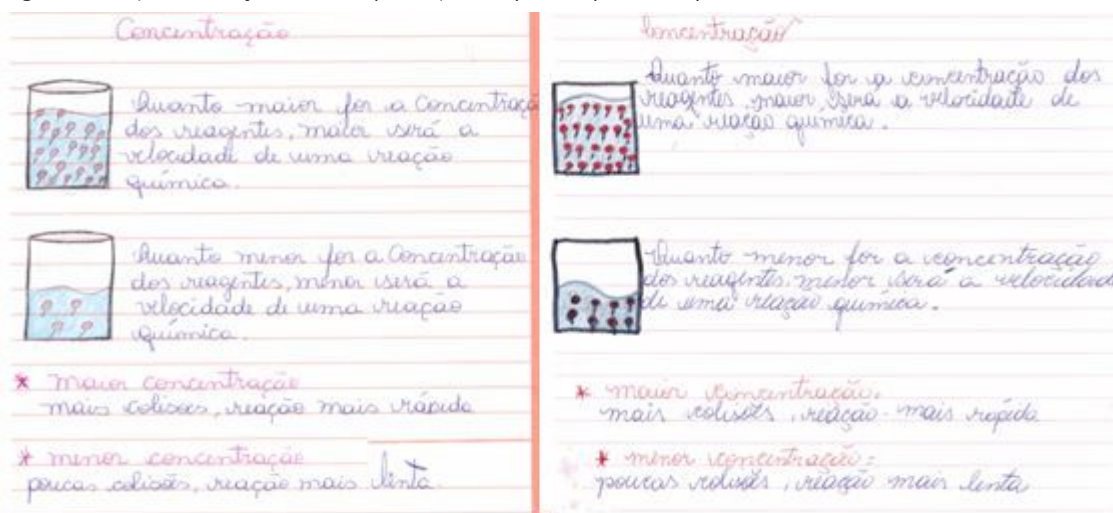 Concentração
Quanto maior for a Concentraçã
dos reagentes, maior será a
velocidade de uma reação
química.
Quanto menor for a Concentração
dos reagentes, menor será a
velocidade de uma reação
química.
* maior concentração
mais colisões, reação mais rápida
* menor concentração
poucas colisões, reação mais lenta.
Concentração
Quanto maior for a concentração dos
reagentes, maior será a velocidade de
uma reação química.
Quanto menor for a concentração
dos reagentes, menor será a velocidade
de uma reação química.
* maior concentração:
mais colisões, reação mais rápida
* menor concentração:
poucas colisões, reação mais lenta